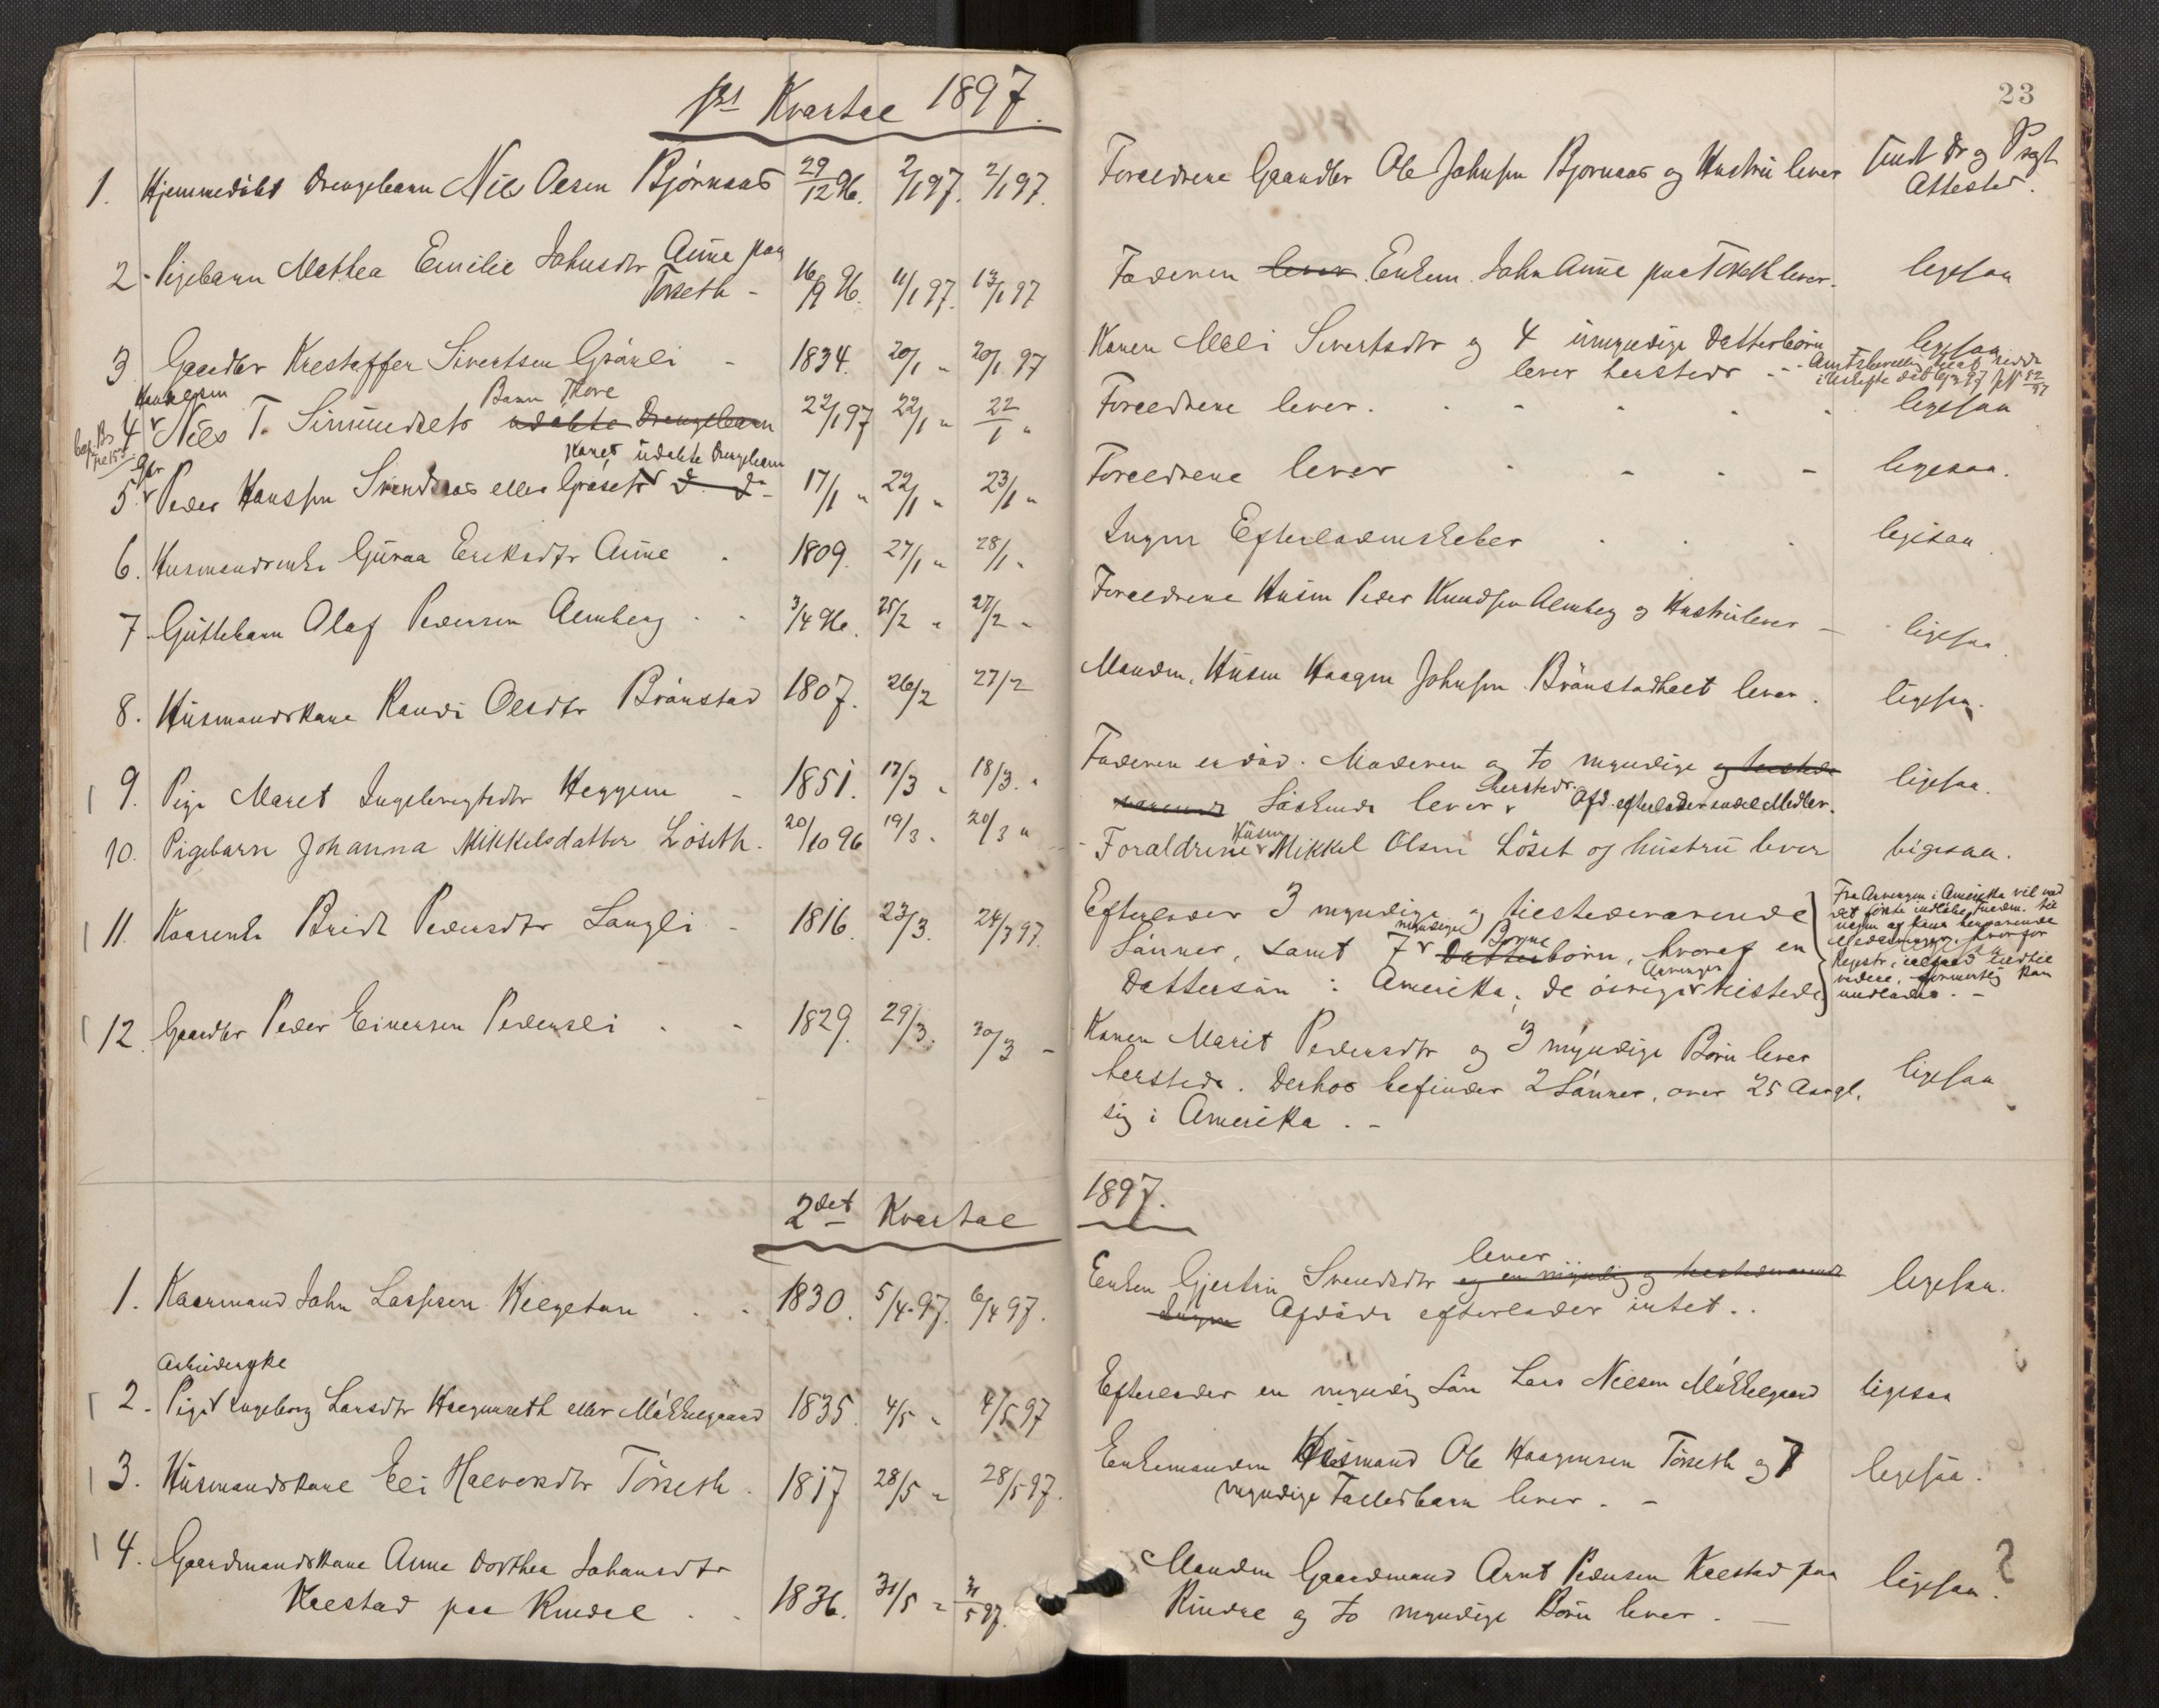 1ste Kvartal 1897.
23
1. Hjemmedøbt Drengebarn Nils Olsen Bjørnaas 29/12 96. 2/1 97. 2/1 97. Forældrene Gaardbr Ole Johnsen Bjørnaas og Hustru lever
Attester.
2. Pigebarn Mathea Emilie Johnsdtr Aune paa
Torseth - 16/9 96. 11/1 97. 13/1 97 Faderen lever. Enkem. John Aune paa Torseth lever. ligesaa
3 Gaardbr Kristoffer Sivertsen Grønli - 1834. 20/1 " 20/1 97 Konen Mali Sivertsdtr og 4 umyndige Datterbørn
lever hersteds - ligesaa
Barn Thore
4 Nils T. udøbte Drengebarn 22/1 97 22/1 " 22/1 " Forældrene lever. ligesaa
Gbr Kones udøbte Drengebarn
5 Peder Hansen eller d. d. 17/1 " 22/1 " 23/1 " Forældrene lever ligesaa.
6. Husmandsenke Guraa Eriksdtr Aune 1809. 27/1 " 28/1 " Ingen Efterladenskaber ligesaa
7 Guttebarn Olaf Pedersen Almberg 3/4 96. 25/2 " 27/2 " Forældrene Husm Peder Knudsen Almberg og Hustru lever - ligesaa.
8. Husmandskone Randi Olsdtr Brønstad 1807. 26/2 27/2 Manden, Husm Haagen Johnsen Brønstadhalt lever. ligesaa.
9. Pige Maret Ingebrigtsdtr Heggem - 1851. 17/3 " 18/3. " Faderen er død. Moderen og to myndige og hersteds
værende Søskende lever hersteds. Afd. efterlader endel Midler. ligesaa.
10. Pigebarn Johanna Mikkelsdatter Løseth. 20/10 96 19/3 " 20/3 " Forældrene Husm Mikkel Olsen Løset og hustru lever ligesaa.
11. Kaarenke Brit Pedersdtr Langli - 1816. 23/3. 24/3 97. Efterlader 3 myndige og herstedsværende
Sønner, samt 7 myndige Datterbørn Børne, hvoraf en
Dattersøn i Amerika; de øvrige Arvinger herstede
Fra Arvingen i Amerika vil ved
12. Gaardbr Peder Einersen Pedersli - 1829. 29/3. 30/3 - Konen Marit Pedersdtr og 3 myndige Børn lever
hersteds. Derhos befinder 2 Sønner, over 25 Aar gl.
sig i Amerika. - ligesaa
2det Kvartal 1897.
1. Kaarmand John Larssen Kelgetun 1830. 5/4 97. 6/4 97. Enken Gjertru Svendsdtr lever og en myndig og herstedsværende
Afdøde efterlader intet.. ligesaa.
Arbeiderske
2. Pige Ingeborg Larsdtr Haagenseth eller Møkkelgaard 1835. 4/5 " 4/5 97 Efterlader en myndig Søn Lars Nilsen Møkkelgaard ligesaa
3. Husmandskone Eli Halvorsdtr Torseth. 1817 28/5 " 28/5 97. Enkemanden Husmand Ole Haagensen Torseth og 7
myndige Fællesbarn lever. - ligesaa.
4. Gaardmandskone Anne Dorthea Johansdtr
Kaestad paa Rindal 1836. 31/5 " 31/5 97. Manden Gaardmand Arnt Pedersen Kaestad paa
Rindal og to myndige Børn lever. - ligesaa.